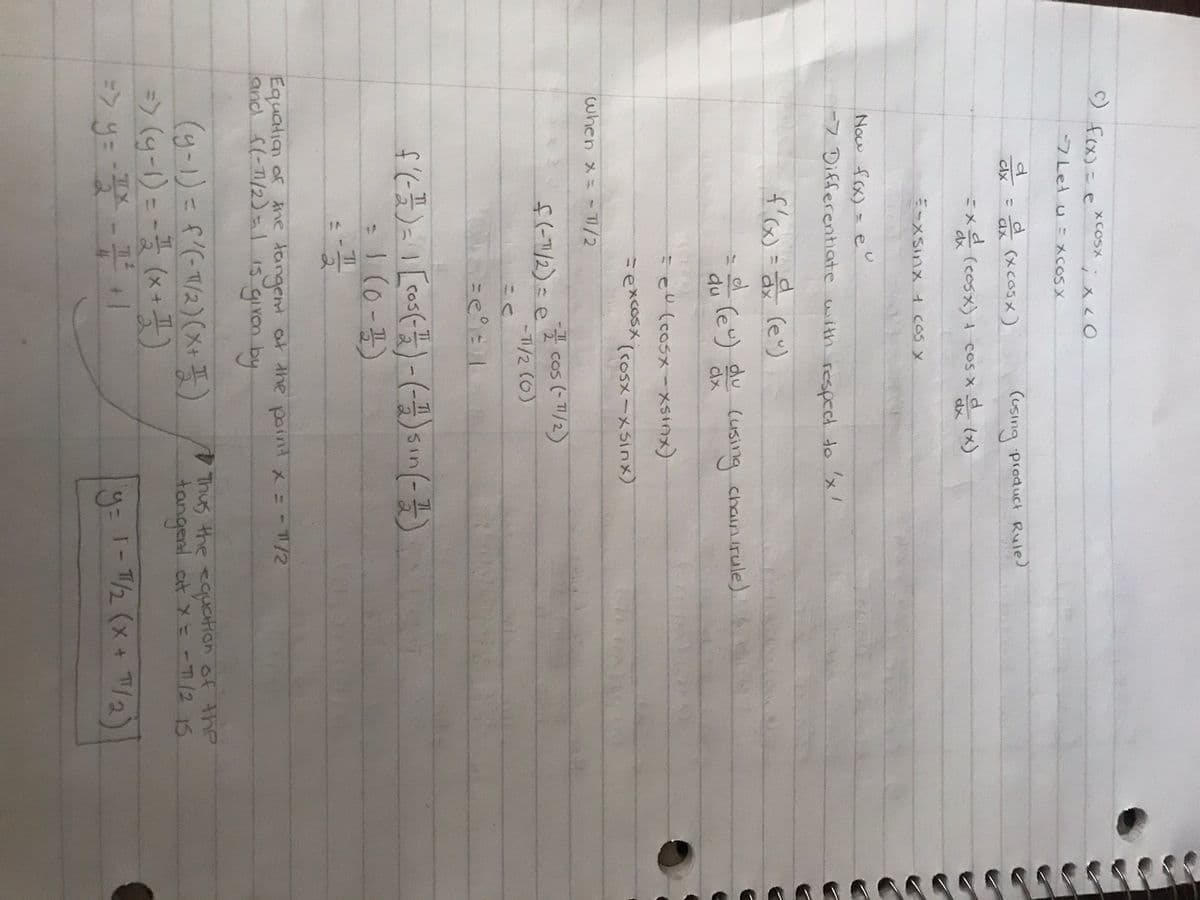 c) f(x) = e^xcosx ; x < 0
-> Let u = xcosx
d/dx = d/dx (xcosx) (using product Rule)
= x d/dx (cosx) + cosx d/dx (x)
= -xsinx + cosx
Now f(x) = e^u
-> Differentiate with respect to 'x'
f'(x) = d/dx (e^u)
= d/du (e^u) du/dx (using chain rule)
= e^u (cosx - xsinx)
= e^xcosx (cosx - xsinx)
when x = -π/2
f(-π/2) = e^(-π/2 cos(-π/2))
= e^(-π/2 (0))
= e^0 = 1
f'(-π/2) = 1 [cos(-π/2) - (-π/2) sin(-π/2)]
= 1 (0 - π/2)
= -π/2
Equation of the tangent at the point x = -π/2
and f(-π/2) = 1 is given by
(y-1) = f'(-π/2)(x + π/2)
=> (y-1) = -π/2 (x + π/2)
=> y = -πx/2 - π²/4 + 1
Thus the equation of the
tangent at x = -π/2 is
y = 1 - π/2 (x + π/2)